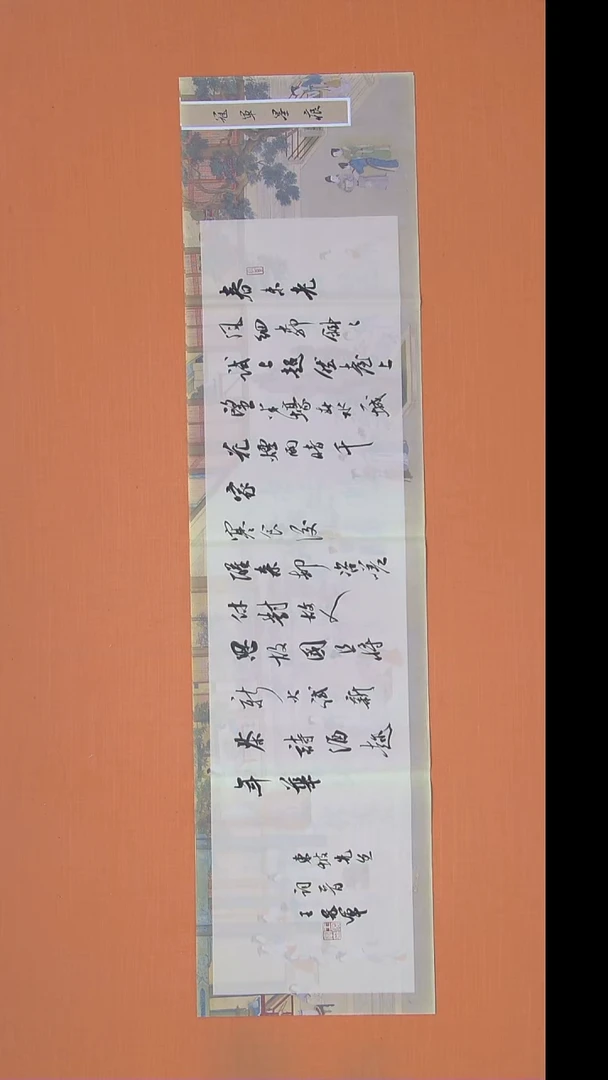 冠軍墨痕
春未老
風細柳斜々
試上超然臺上
望半壕春水一城
花煙雨暗千
家
寒食後
醒來卻咨嗟
休對故人
思故國且將
新火試新
茶詩酒趁
年華
東坡先生
詞一首
王冠軍